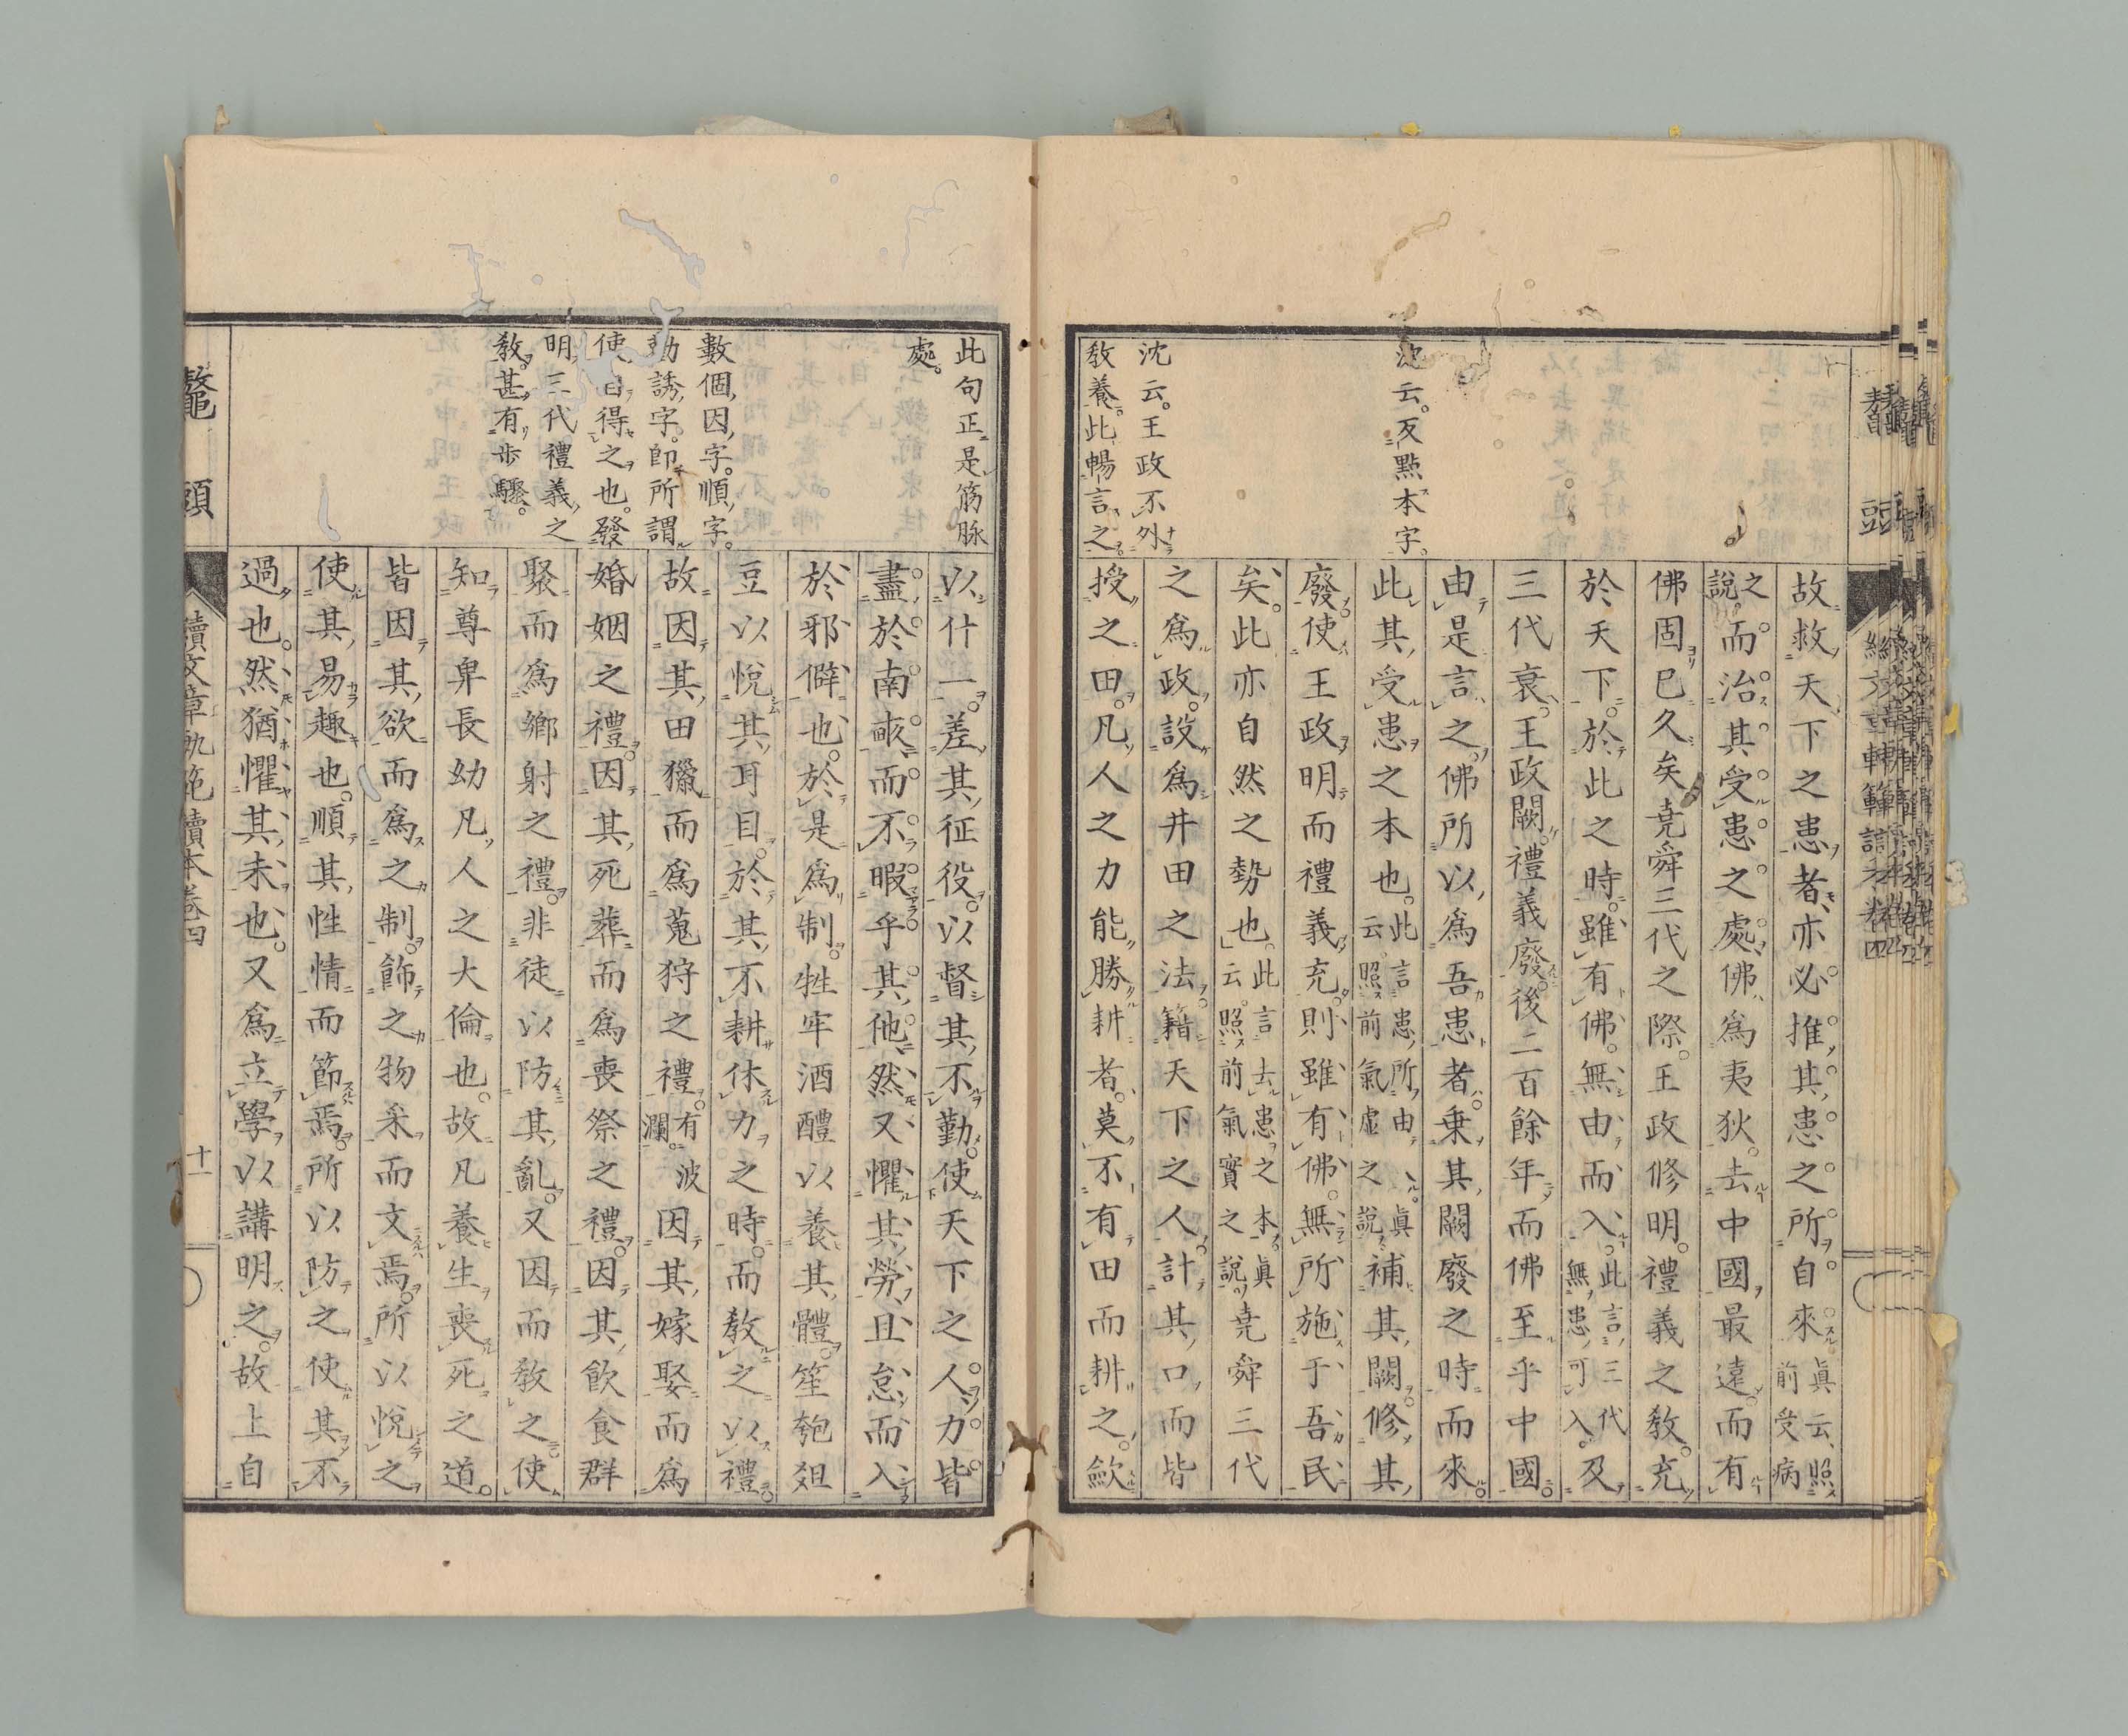 沈云。反點本字。
沈云。王政不外
敎養。此暢言之。
故救天下之患者、亦必推其患之所自來。眞云、照前受病
之說。而治其受患之處。佛爲夷狄。去中國最遠。而有
佛固已久矣。堯舜三代之際。王政修明。禮義之敎。充
於天下。於此之時。雖有佛。無由而入。此言三代無患可入。及
三代衰。王政闕。禮義廢。後二百餘年。而佛至乎中國。
由是言之。佛所以爲吾患者。乘其闕廢之時而來。
此其受患之本也。此言患所由、眞云照前氣虛之說補其闕。修其
廢。使王政明而禮義充。則雖有佛。無所施于吾民
矣。此亦自然之勢也。此言去患之本、眞云。照前氣實之說堯舜三代
之爲政。設爲井田之法。籍天下之人。計其口而皆
授之田。凡人之力能勝耕者。莫不有田而耕之。歛
此句正是筋脉
處。
數個因字。順字。
誘字。卽所謂
使得之也。發
明三代禮義之
敎。甚有步驟。
以什一。差其征役。以督其不勤。使天下之人力。皆
盡於南畝。而不暇乎其他。然又懼其勞且怠。而入
於邪僻也。於是爲制。牲牢酒醴以養其體。笙匏俎
豆以悅其耳目。於其不耕休力之時。而敎之以禮。
故因其田獵而爲蒐狩之禮。有波瀾。因其嫁娶而爲
婚姻之禮。因其死葬而爲喪祭之禮。因其飮食群
聚而爲鄕射之禮。非徒以防其亂。又因而敎之。使
知尊卑長幼凡人之大倫也。故凡養生喪死之道。
皆因其欲而爲之制。飾之物采而文焉。所以悅之
使其易趣也。順其性情而節焉。所以防之使其不
過也。然猶懼其未也。又爲立學以講明之。故上自
鼇頭 續文章軌範讀本卷四 十一